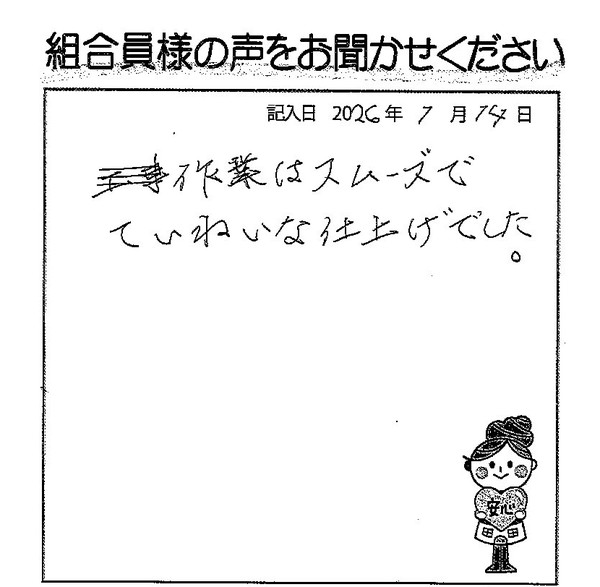 組合員様の声をお聞かせください
記入日 2026年 1月14日
作業はスムーズで
ていねいな仕上げでした。
安心